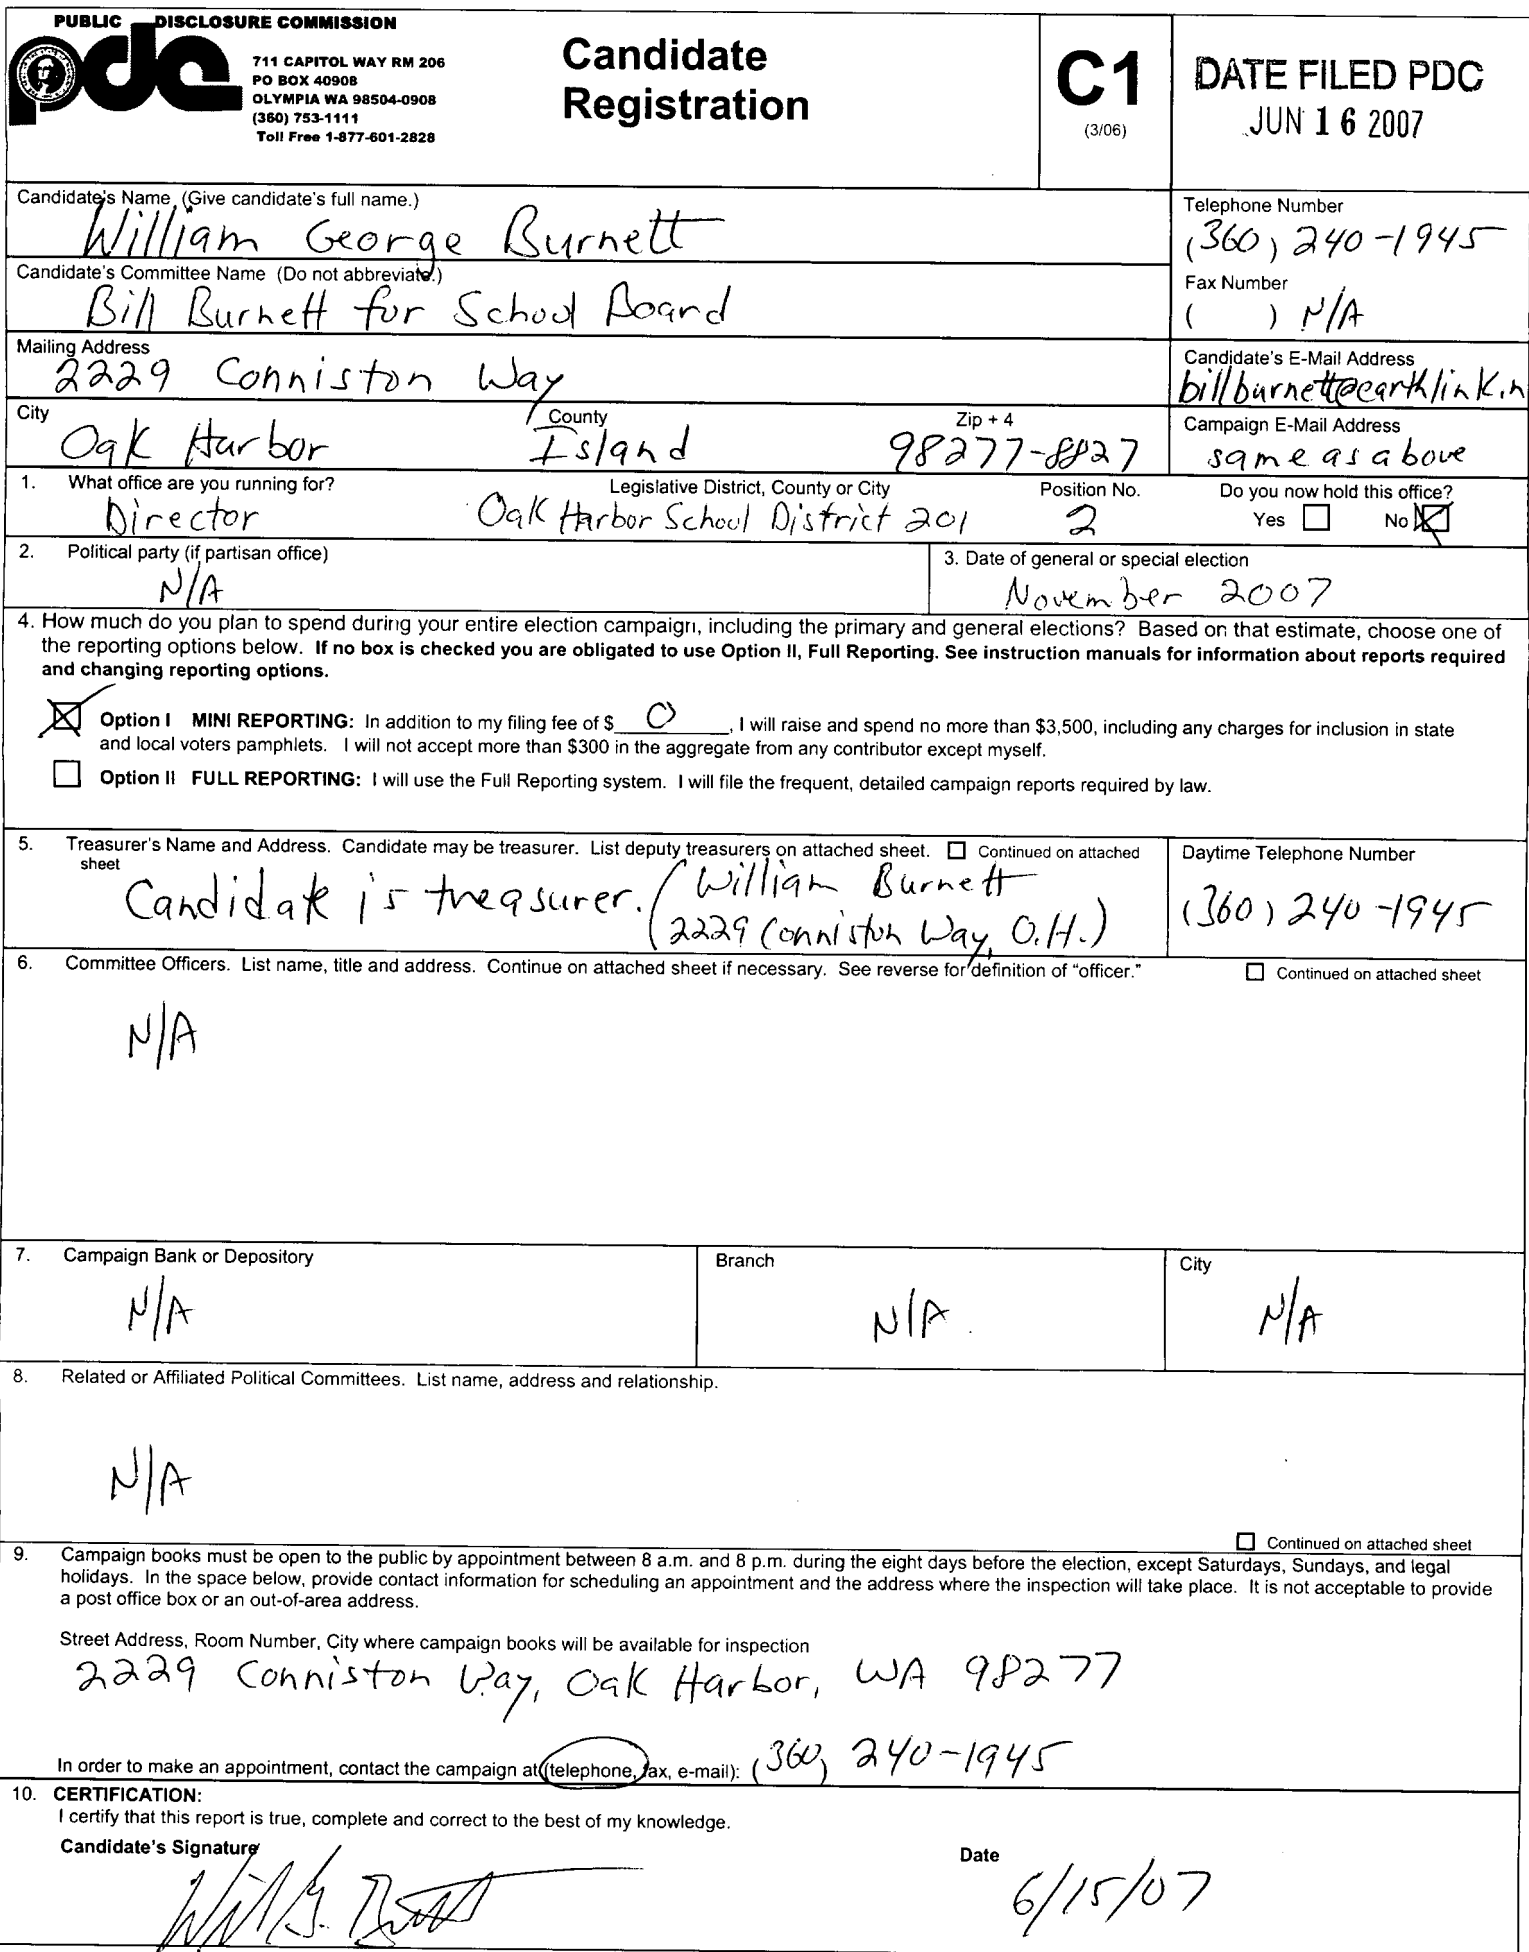 PUBLIC DISCLOSURE COMMISSION
pdc
711 CAPITOL WAY RM 206
PO BOX 40908
OLYMPIA WA 98504-0908
(360) 753-1111
Toll Free 1-877-601-2828
Candidate
Registration
C1
(3/06)
DATE FILED PDC
JUN 16 2007
Candidate's Name (Give candidate's full name.)
William George Burnett
Telephone Number
(360) 240-1945
Candidate's Committee Name (Do not abbreviate.)
Bill Burnett for School Board
Fax Number
( ) N/A
Mailing Address
2229 Conniston Way
Candidate's E-Mail Address
billburnett@earthlink.n
City County Zip + 4
Oak Harbor Island 98277-8827
Campaign E-Mail Address
same as above
1. What office are you running for? Legislative District, County or City Position No. Do you now hold this office?
Director Oak Harbor School District 201 2 Yes No
2. Political party (if partisan office)
N/A
3. Date of general or special election
November 2007
4. How much do you plan to spend during your entire election campaign, including the primary and general elections? Based on that estimate, choose one of
the reporting options below. If no box is checked you are obligated to use Option II, Full Reporting. See instruction manuals for information about reports required
and changing reporting options.
Option I MINI REPORTING: In addition to my filing fee of $ 0 , I will raise and spend no more than $3,500, including any charges for inclusion in state
and local voters pamphlets. I will not accept more than $300 in the aggregate from any contributor except myself.
Option II FULL REPORTING: I will use the Full Reporting system. I will file the frequent, detailed campaign reports required by law.
5. Treasurer's Name and Address. Candidate may be treasurer. List deputy treasurers on attached sheet. Continued on attached
sheet
Candidate is treasurer. (William Burnett
2229 Conniston Way, O.H.)
Daytime Telephone Number
(360) 240-1945
6. Committee Officers. List name, title and address. Continue on attached sheet if necessary. See reverse for definition of "officer." Continued on attached sheet
N/A
7. Campaign Bank or Depository Branch City
N/A N/A N/A
8. Related or Affiliated Political Committees. List name, address and relationship.
N/A
Continued on attached sheet
9. Campaign books must be open to the public by appointment between 8 a.m. and 8 p.m. during the eight days before the election, except Saturdays, Sundays, and legal
holidays. In the space below, provide contact information for scheduling an appointment and the address where the inspection will take place. It is not acceptable to provide
a post office box or an out-of-area address.
Street Address, Room Number, City where campaign books will be available for inspection
2229 Conniston Way, Oak Harbor, WA 98277
In order to make an appointment, contact the campaign at (telephone, fax, e-mail): (360) 240-1945
10. CERTIFICATION:
I certify that this report is true, complete and correct to the best of my knowledge.
Candidate's Signature Date
6/15/07